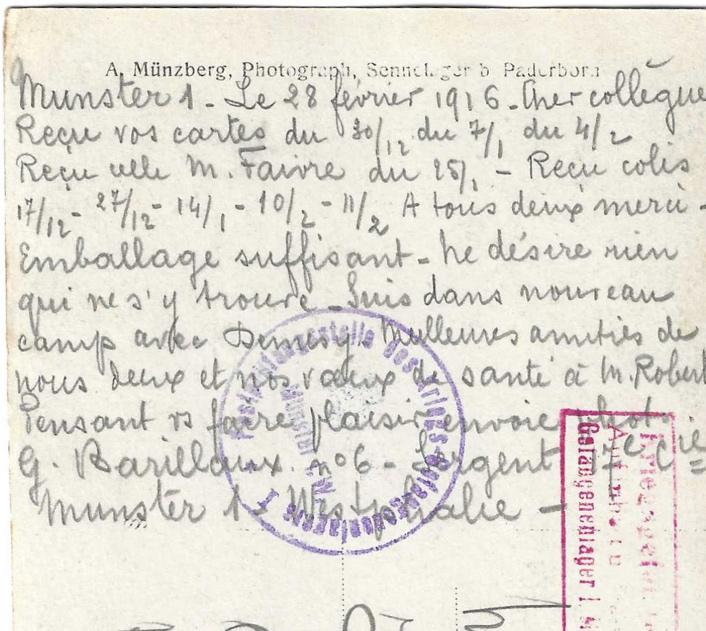 A. Münzberg, Photograph, Sennelager b. Paderborn
Munster 1 - Le 28 février 1916 - Cher collègue
Reçu vos cartes du 30/12 du 7/1 du 4/2
Reçu celle M. Faivre du 25/1 - Reçu colis
17/12 - 27/12 - 14/1 - 10/2 - 11/2 A tous deux merci -
Emballage suffisant - Ne désire rien
qui ne s'y trouve - Suis dans nouveau
camp avec Meilleures amitiés de
nous deux et nos vœux de santé à M. Robert
Pensant vs faire plaisir envoie photo
G. Barillaux n°6 - Sergent Cie
Munster 1 - Westphalie -
Gefangenenlager I